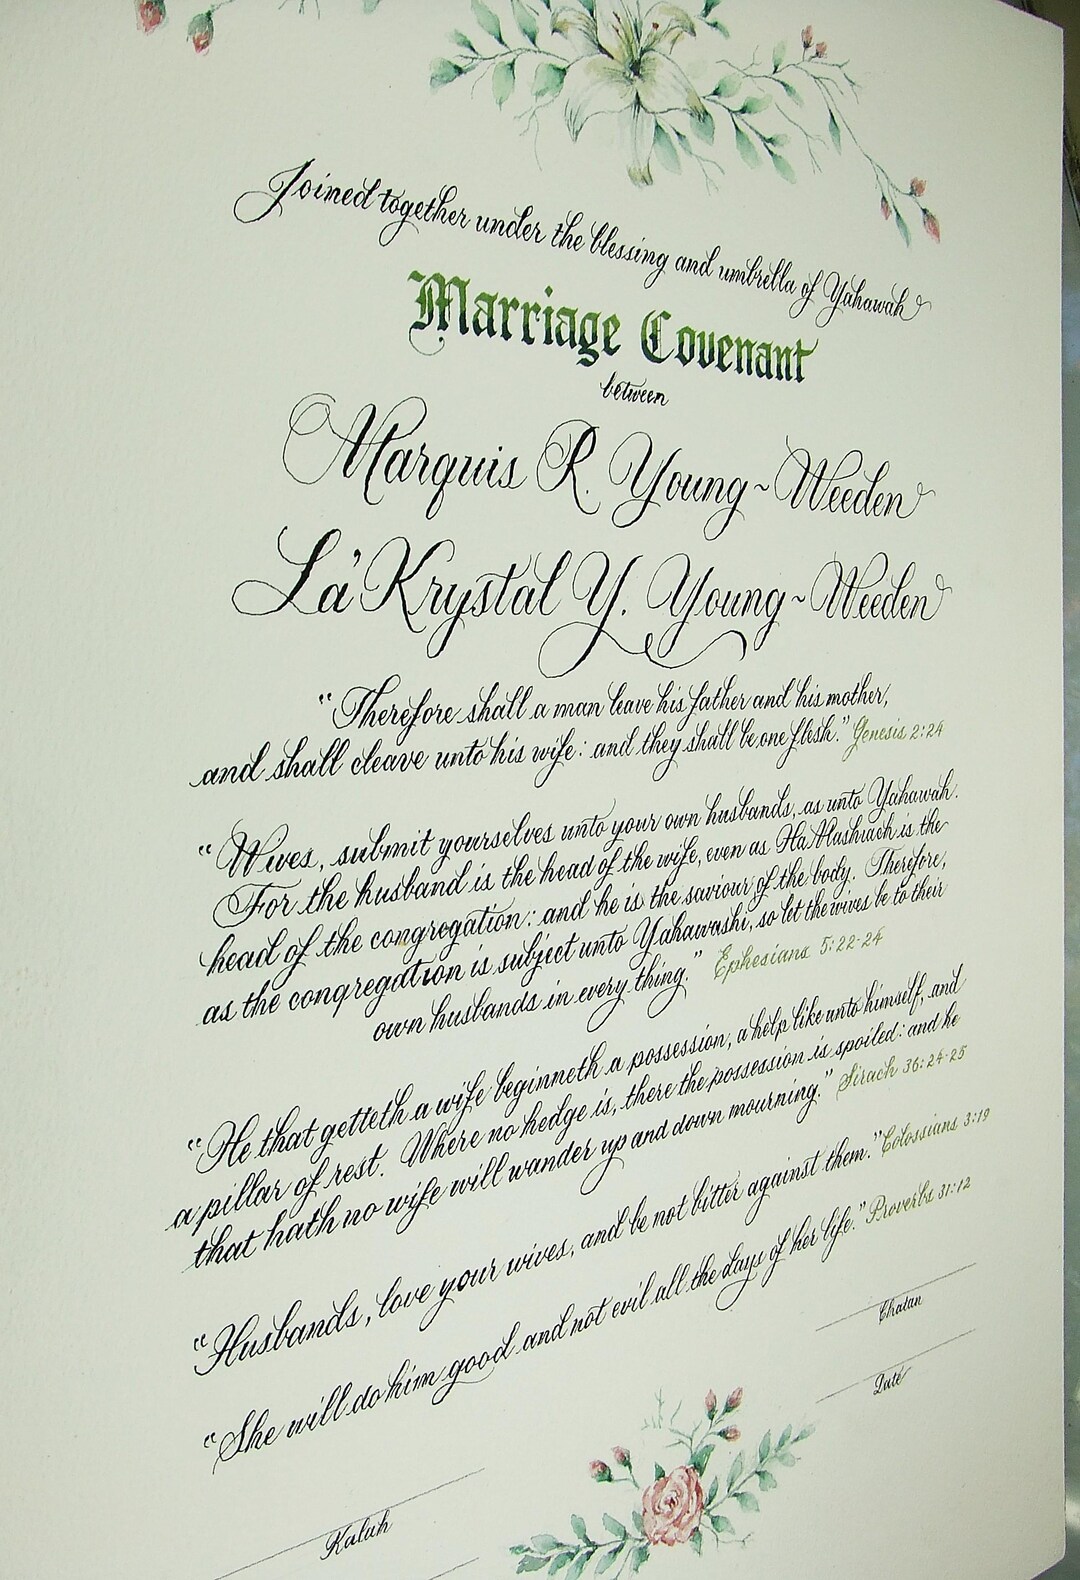 Joined together under the blessing and umbrella of Yahawah
Marriage Covenant
between
Marquis R. Young~Weeden
La'Krystal Y. Young~Weeden
"Therefore shall a man leave his father and his mother,
and shall cleave unto his wife: and they shall be one flesh." Genesis 2:24
"Wives, submit yourselves unto your own husbands, as unto Yahawah.
For the husband is the head of the wife, even as HaMashiach is the
head of the congregation: and he is the saviour of the body. Therefore,
as the congregation is subject unto Yahawashi, so let the wives be to their
own husbands in every thing." Ephesians 5:22-24
"He that getteth a wife beginneth a possession, a help like unto himself, and
a pillar of rest. Where no hedge is, there the possession is spoiled: and he
that hath no wife will wander up and down mourning." Sirach 36:24-25
"Husbands, love your wives, and be not bitter against them." Colossians 3:19
"She will do him good and not evil all the days of her life." Proverbs 31:12
Chatan
Date
Kalah